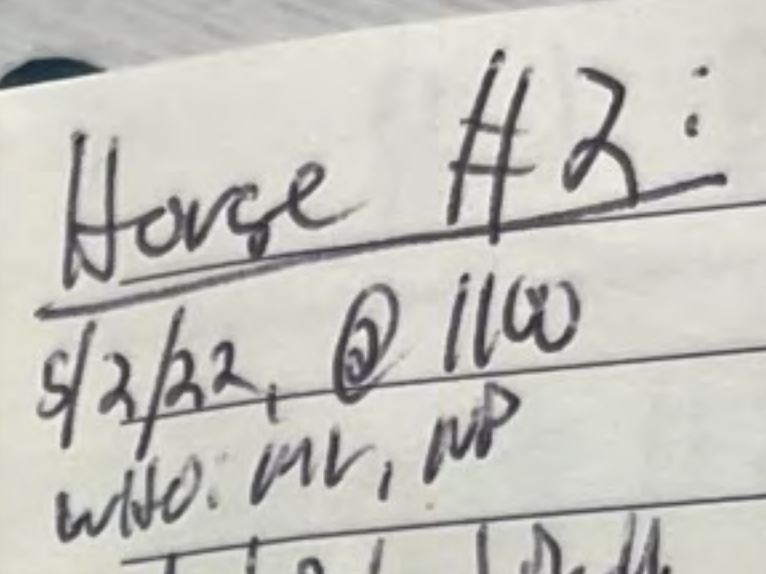 House #2:
5/2/22, @ 1100
WHO: MV, NP